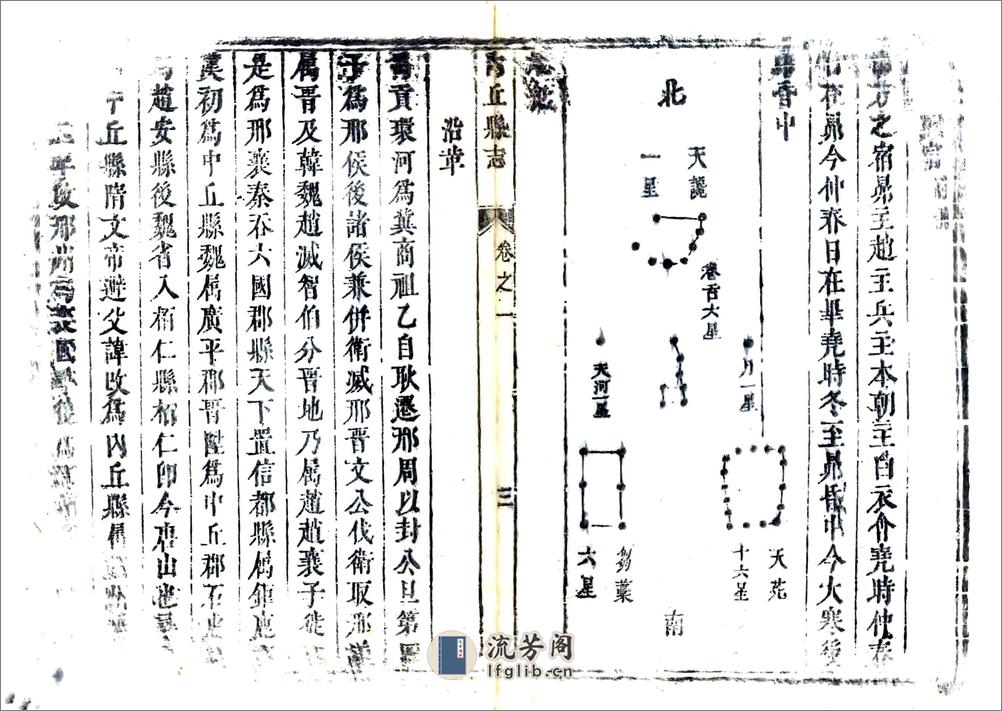 方之宿昴主趙主兵主本朝主白衣會堯時仲春
在昴今仲春日在畢堯時冬至昴昏中今大寒後
昏中
北
天讒
一星
卷舌六星
月一星
天河一星
天苑
十六星
芻藁
六星
南
丘縣志
卷之一
三
沿革
貢環河爲冀商祖乙自耿遷邢周以封公旦第
子爲邢侯後諸侯兼併衛滅邢晉文公伐衛取邢
属晉及韓魏趙滅智伯分晉地乃属趙趙襄子徙
是爲邢襄秦吞六國郡縣天下置信都縣属鉅鹿
漢初爲中丘縣魏属廣平郡晉陞爲中丘郡石
趙安縣後魏省入栢仁縣栢仁即今唐山也
丘縣隋文帝避父諱改爲内丘縣
年改邢州爲襄國後爲
流芳阁
lfglib.cn